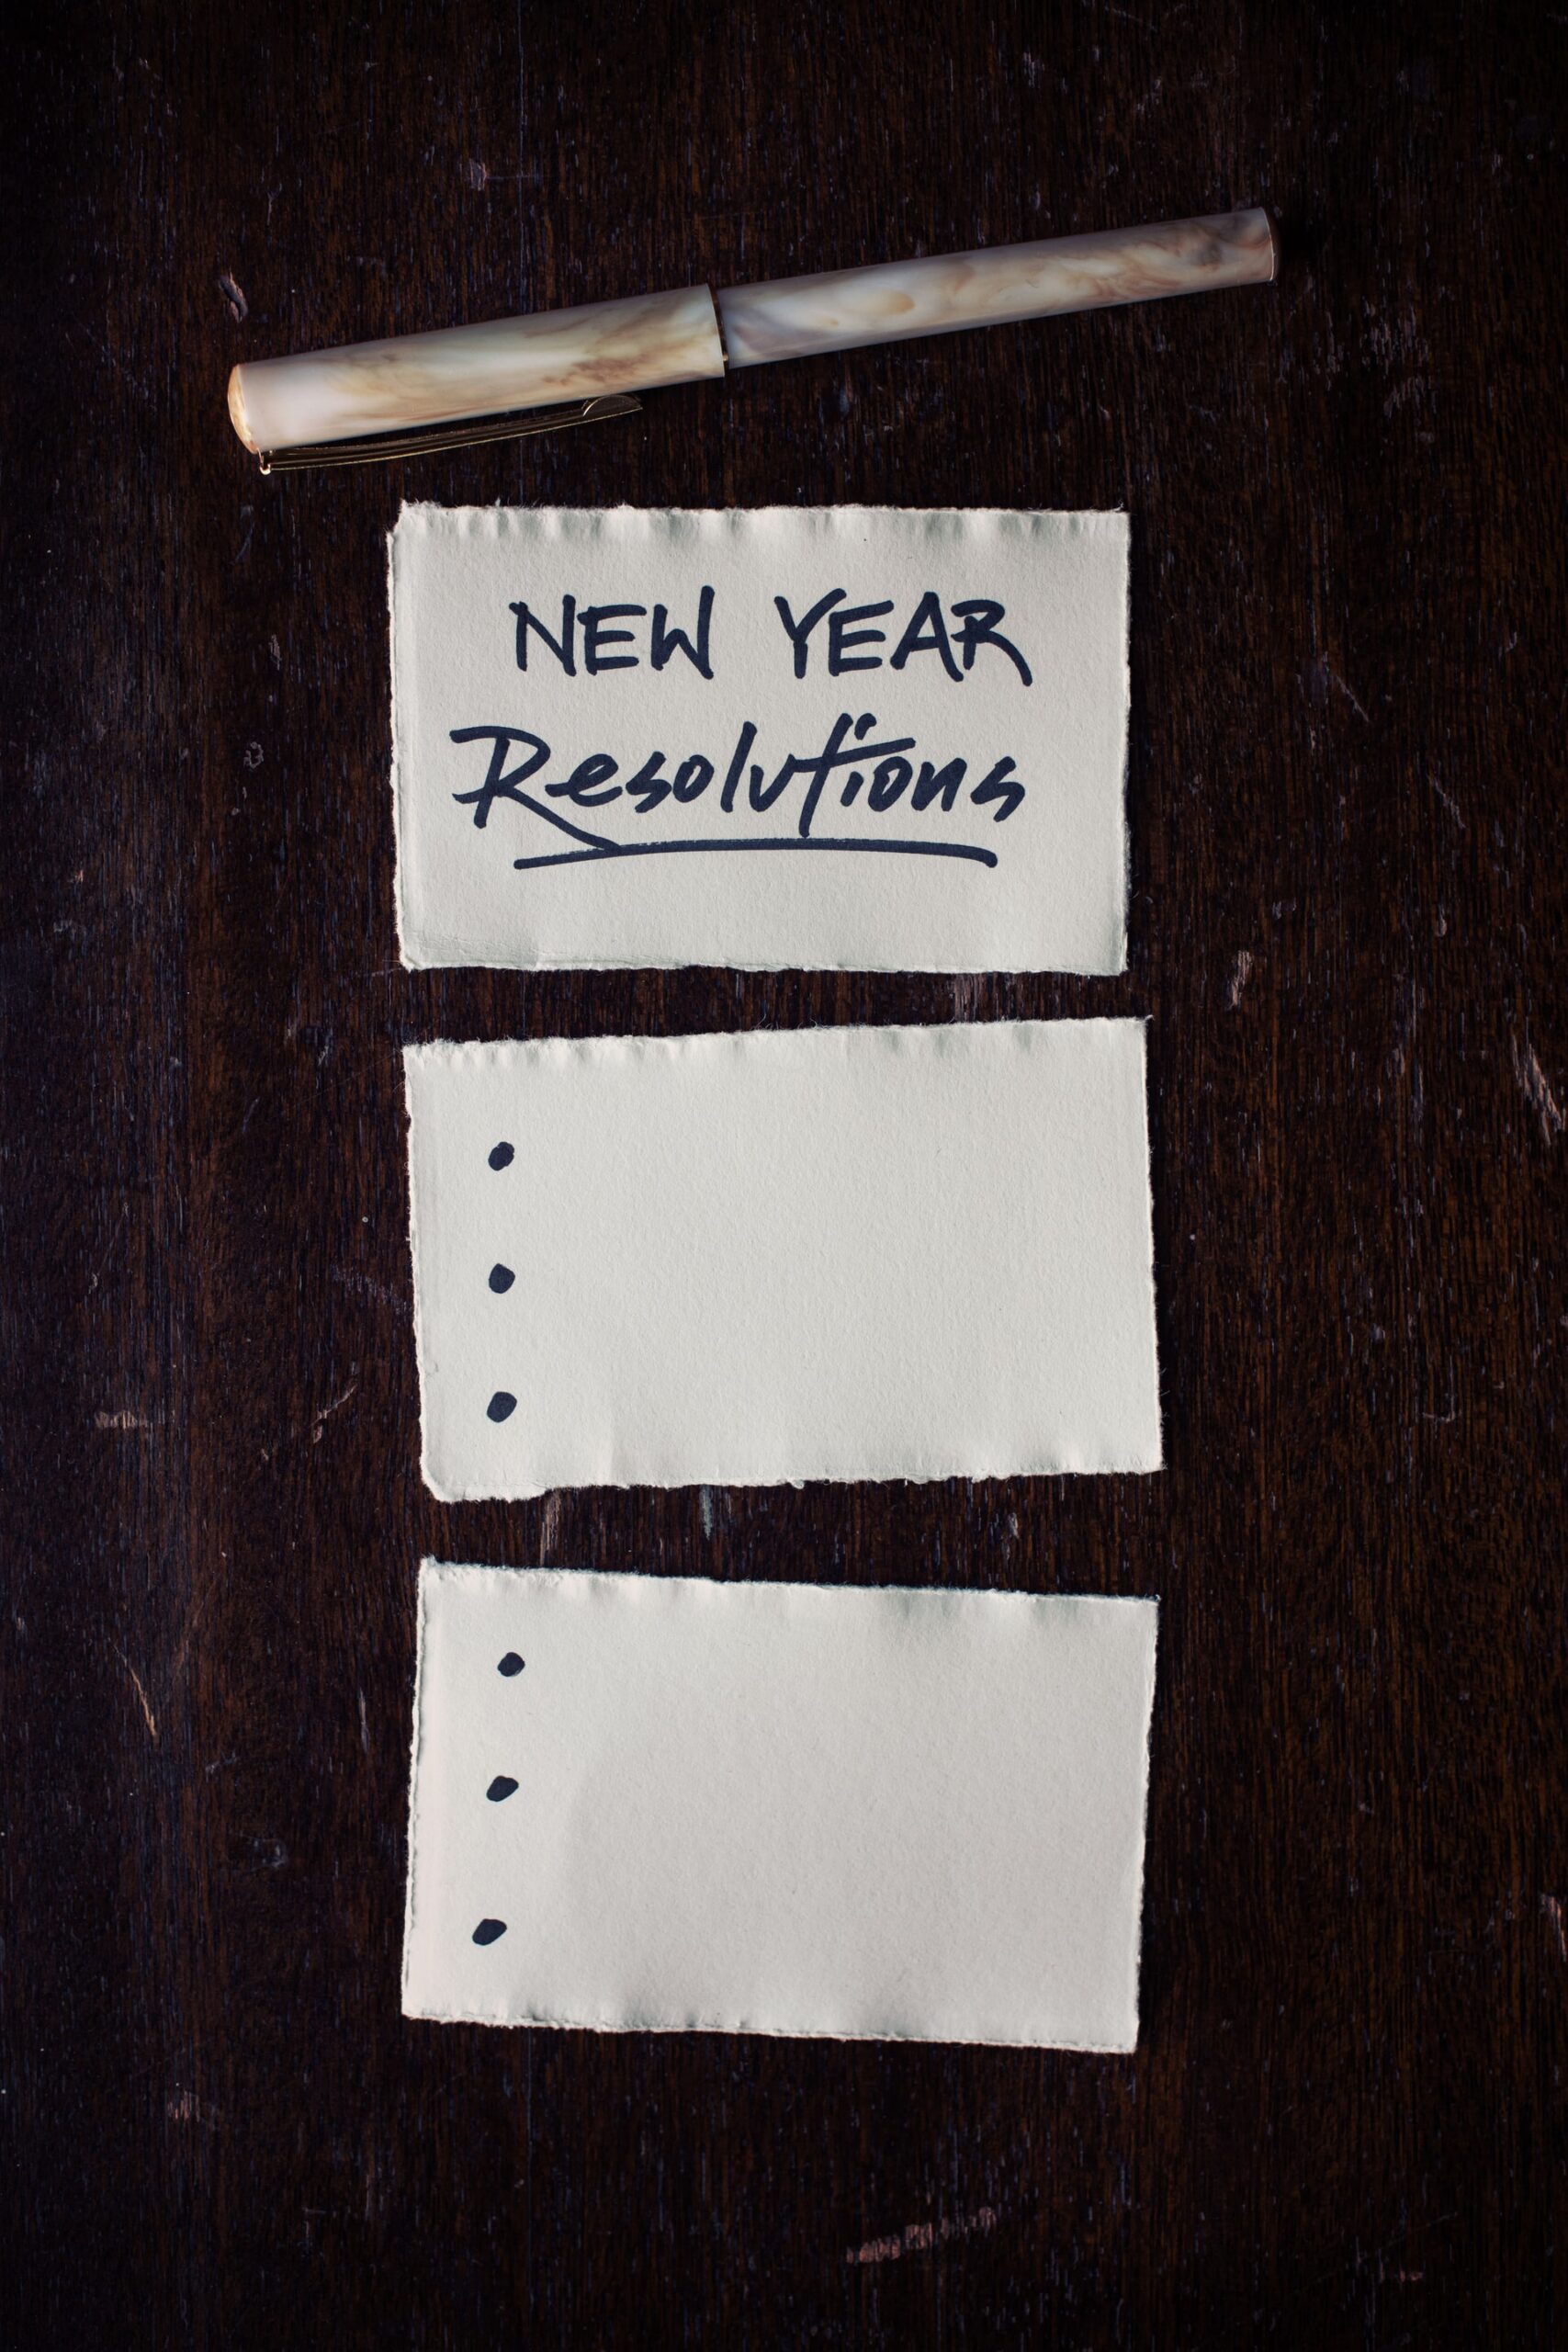 NEW YEAR
Resolutions
•
•
•
•
•
•